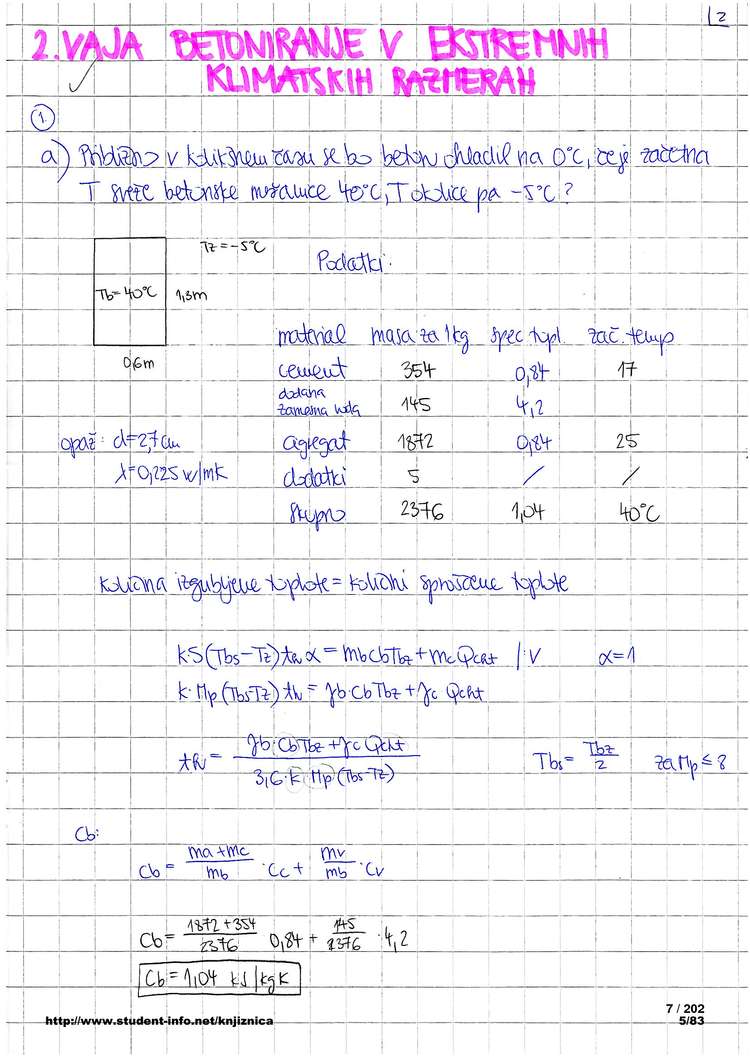 2
2. VAJA BETONIRANJE V EKSTREMNIH
KLIMATSKIH RAZMERAH
1.
a) Približno v kolikšnem času se bo beton ohladil na 0°C, če je začetna
T sveže betonske mešanice 40°C, T okolice pa -5°C?
Tz=-5°C
Podatki:
Tb=40°C 1,3m
material masa za 1kg spec. topl. zač. temp
0,6m
cement 354 0,84 17
dodana
zamesna voda 145 4,2
opaž: d=2,7cm agregat 1872 0,84 25
λ=0,225 W/mK dodatki 5 / /
skupno 2376 1,04 40°C
količina izgubljene toplote = količini sproščene toplote
kS(Tbs-Tz)th α = mbCbTbz + mcQcht |:V α=1
k·Mp(Tbs-Tz)th = γb·CbTbz + γcQcht
th = γb·CbTbz + γcQcht / 3,6·k·Mp(Tbs-Tz) Tbs = Tbz/2 za Mp ≤ 8
Cb:
Cb = ma+mc/mb ·Cc + mv/mb ·Cv
Cb = 1872+354/2376 0,84 + 145/2376 ·4,2
Cb = 1,04 kJ/kgK
7 / 202
http://www.student-info.net/knjiznica 5/83